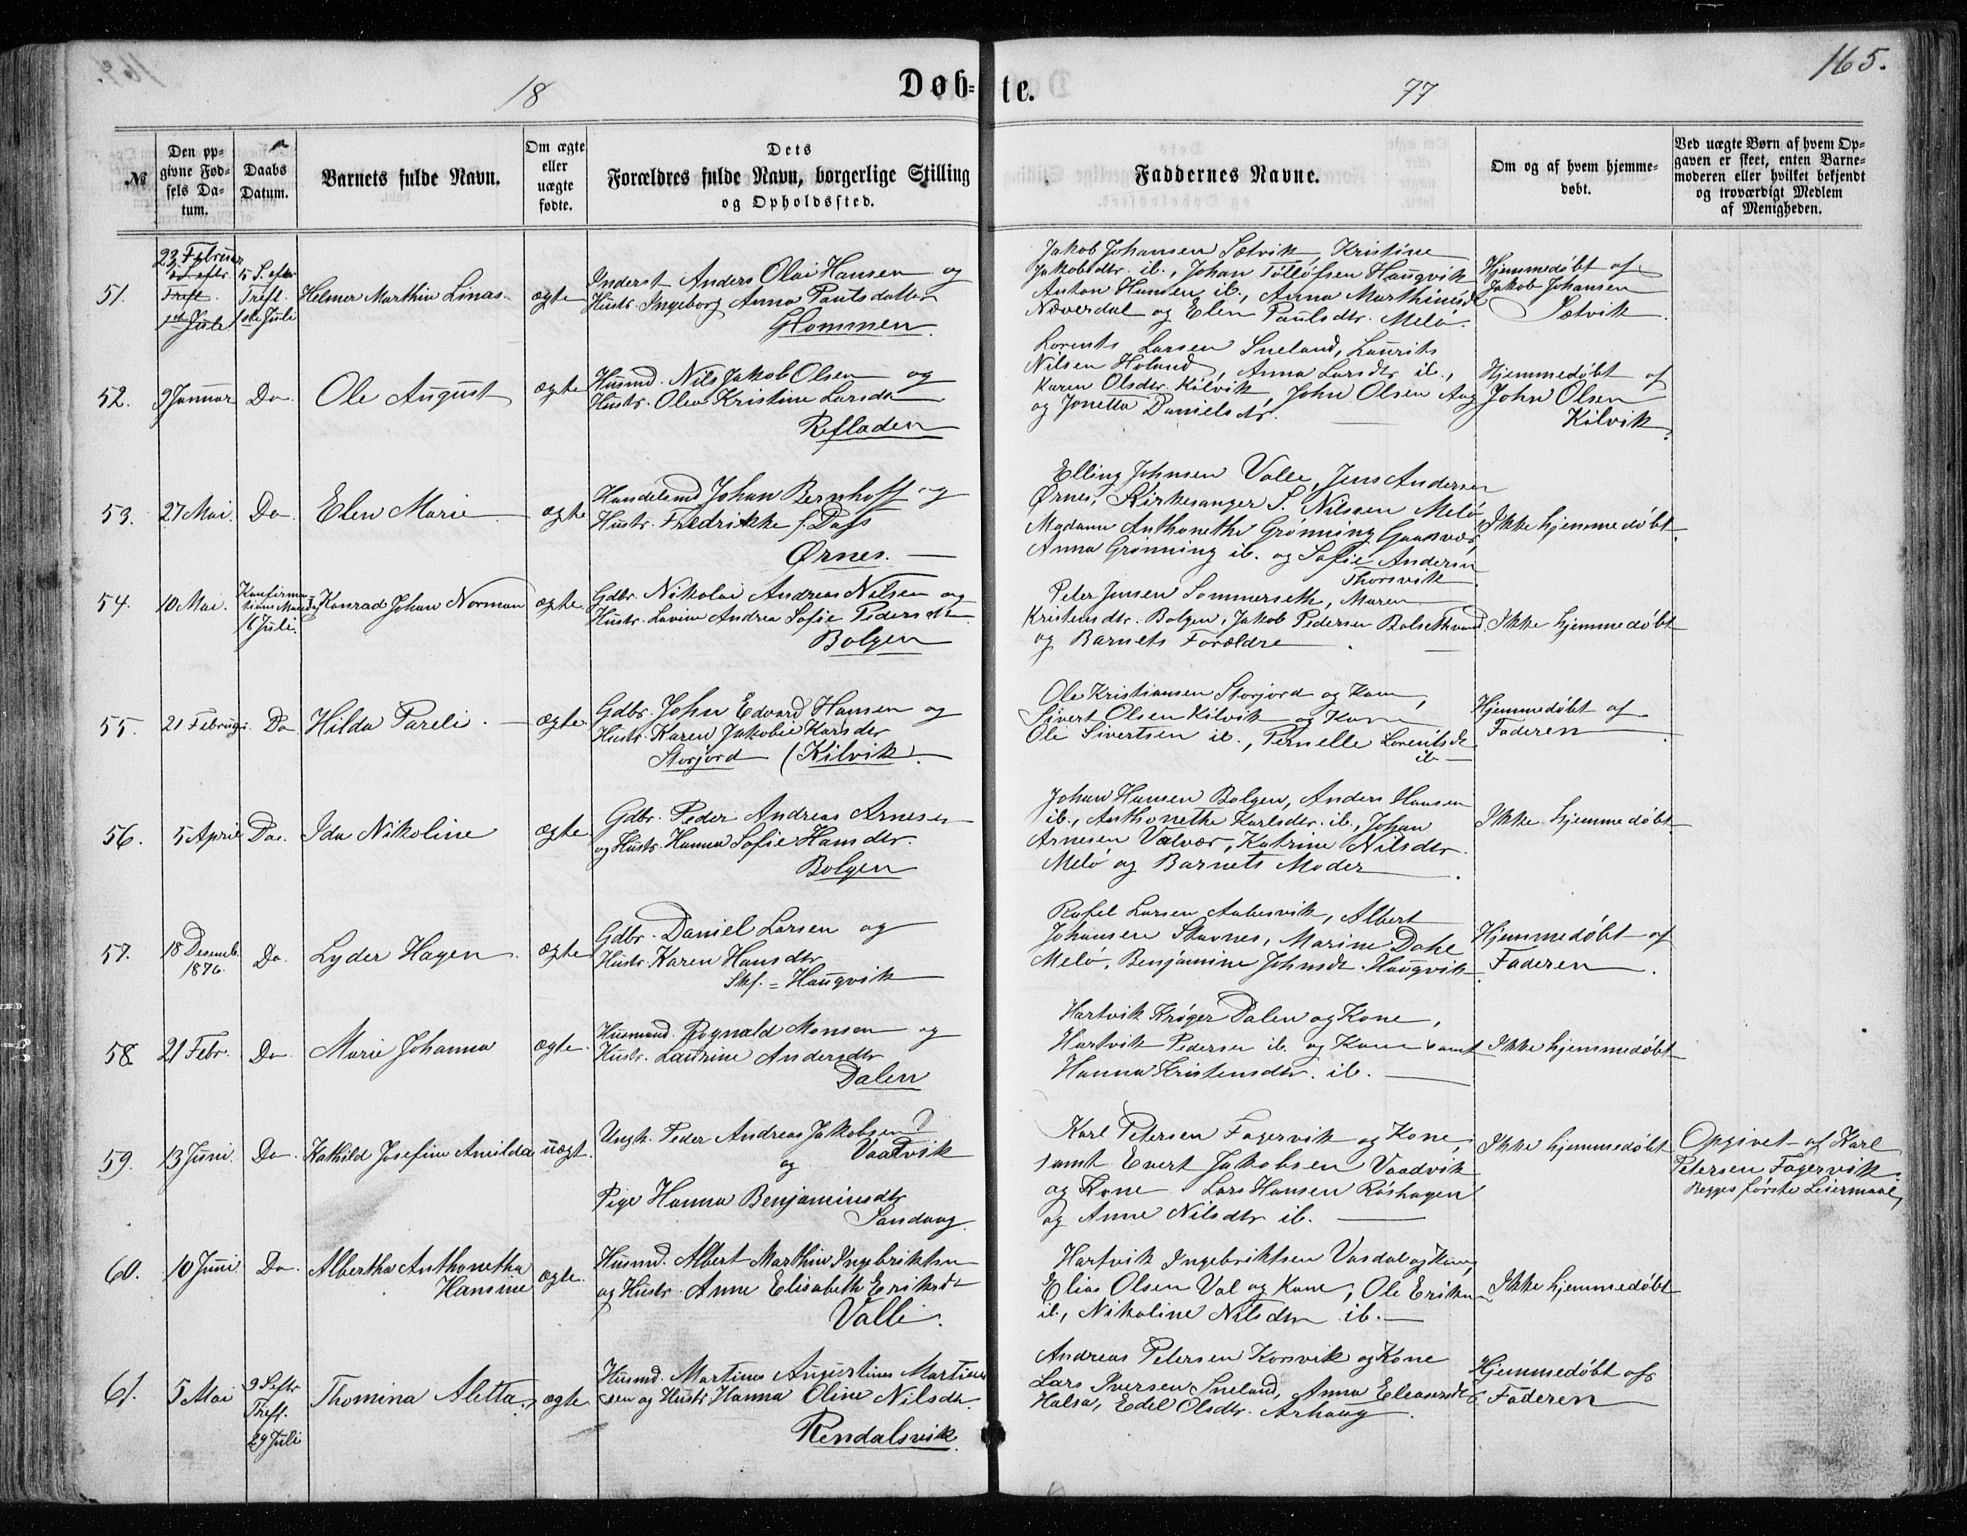 165.
18 Døb-te. 77
№
Den opgivne Fødsels Datum.
Daabs Datum.
Barnets fulde Navn.
Om ægte eller uægte fødte.
Dets Forældres fulde Navn, borgerlige Stilling og Opholdssted.
Faddernes Navne.
Om og af hvem hjemmedøbt.
Ved uægte Børn af hvem Opgaven er skeet, enten Barnemoderen eller hvilket bekjendt og troværdigt Medlem af Menigheden.
51.
23 Februar
5 S. efter
Tref.
1ste Juli
Helmer Marthin Linas
ægte
Inderst Anders Olai Hansen og
Hustr. Ingeborg Anna Paulsdatter
Glommen.
Jakob Johansen Sætvik, Kristine
Jakobsdtr. ib., Johan Tollefsen Haugvik
Anton Hansen ib., Anna Marthinsdt
Næverdal og Elen Paulsdtr. Melø.
Hjemmedøbt af
Jakob Johansen
Sætvik.
52.
9 Januar
Do
Ole August
ægte
Husmd. Nils Jakob Olsen og
Hustr. Olea Kristine Larsdtr
Refladen
Lorents Larsen Sneland, Laurits
Nilsen Holand, Anna Larsdtr ib.,
Karen Olsdtr. Kilvik, John Olsen Aag
og Jonetta Danielsdtr.
Hjemmedøbt af
John Olsen
Kilvik.
53.
27 Mai.
Do
Elen Marie
ægte
Handelsmd Johan Bernhoff og
Hustr. Fredrikke f. Dass
Ørnes.
Elling Johnsen Valle, Jens Andersen
Ørnes, Kirkesanger S. Nilssen Melø
Madame Anthonethe Grønning Gaasvær,
Anna Grønning ib. og Sofie Andersen
Thorsvik
Ikke hjemmedøbt.
54.
10 Mai.
Konfirmations Mandag
16 Juli.
Konrad Johan Norman
ægte
Gdbr. Nikolai Andreas Nilsen og
Hustr. Lovine Andrea Sofie Pedersdtr
Bolgen
Peter Jensen Sommerseth, Maren
Kristensdtr. Bolgen, Jakob Pedersen Bolsethvand
og Barnets Forældre.
Ikke hjemmedøbt
55.
21 Februar
Do
Hilda Pareli.
ægte
Gdbr. John Edvard Hansen og
Hustr. Karen Jakobie Karsdtr
Storjord (Kilvik)
Ole Kristiansen Storjord og Kone,
Sivert Olsen Kilvik og Kone
Ole Sivertsen ib., Pernelle Lorentsdt
ib
Hjemmedøbt af
Faderen.
56.
5 April
Do.
Ida Nikoline
ægte
Gdbr. Peder Andreas Arnesen
og Hustr. Hanna Sofie Hansdtr.
Bolgen
Johan Hansen Bolgen, Anders Hansen
ib., Anthonethe Karlsdtr. ib., Johan
Arnesen Valvær, Katrine Nilsdtr.
Melø og Barnets Moder.
Ikke hjemmedøbt
57.
18 Desemb.
1876.
Do.
Lyder Hagen.
ægte
Gdbr. Daniel Larsen og
Hustr. Karen Hansdtr
Haugvik
Rafel Larsen Aabesvik, Albert
Johansen Stavnes, Marine Dahl
Melø, Benjamine Johnsdt. Haugvik.
Hjemmedøbt af
Faderen.
58.
21 Febr.
Do
Marie Johanna
ægte.
Husmand Rognald Monsen og
Hustr. Laurine Andersdtr
Dalen
Hartvik Krøger Dalen og Kone,
Hartvik Pedersen ib. og Kone samt
Hanna Kristensdtr. ib.
Ikke hjemmedøbt
59.
13 Juni.
Do
Kathild Josefine Amilda
uægt.
Ungk. Peder Andreas Jakobsen
Vaadvik
og
Pige Hanna Benjaminsdtr
Sandaag.
Karl Petersen Fagervik og Kone,
samt Evert Jakobsen Vaadvik
og Kone Lars Hansen Røshagen
og Anne Nilsdtr ib.
Ikke hjemmedøbt
Opgivet af Karl
Petersen Fagervik.
Begges første Leiermaal
60.
10 Juni
Do
Albertha Anthonetha
Hansine
ægte.
Husmd. Albert Marthin Ingebriktsen
og Hustr. Anne Elisabeth Eriksdtr
Valle.
Hartvik Ingebriktsen Vasdal og Kone,
Elias Olsen Val og Kone, Ole Eriksen
ib., Nikoline Nilsdtr ib.
Ikke hjemmedøbt
61.
5 Mai
9 S. eftr
Tref.
29 Juli
Thomina Aletta.
ægte
Husmd. Martinus Augustinus Martinus
sen og Hustr. Hanna Oline Nilsdtr.
Rendalsvik.
Andreas Petersen Korsvik og Kone
Lars Iversen Sneland, Anna Eleasersdtr
Halsa, Edel Olsdtr. Arhaug.
Hjemmedøbt af
Faderen